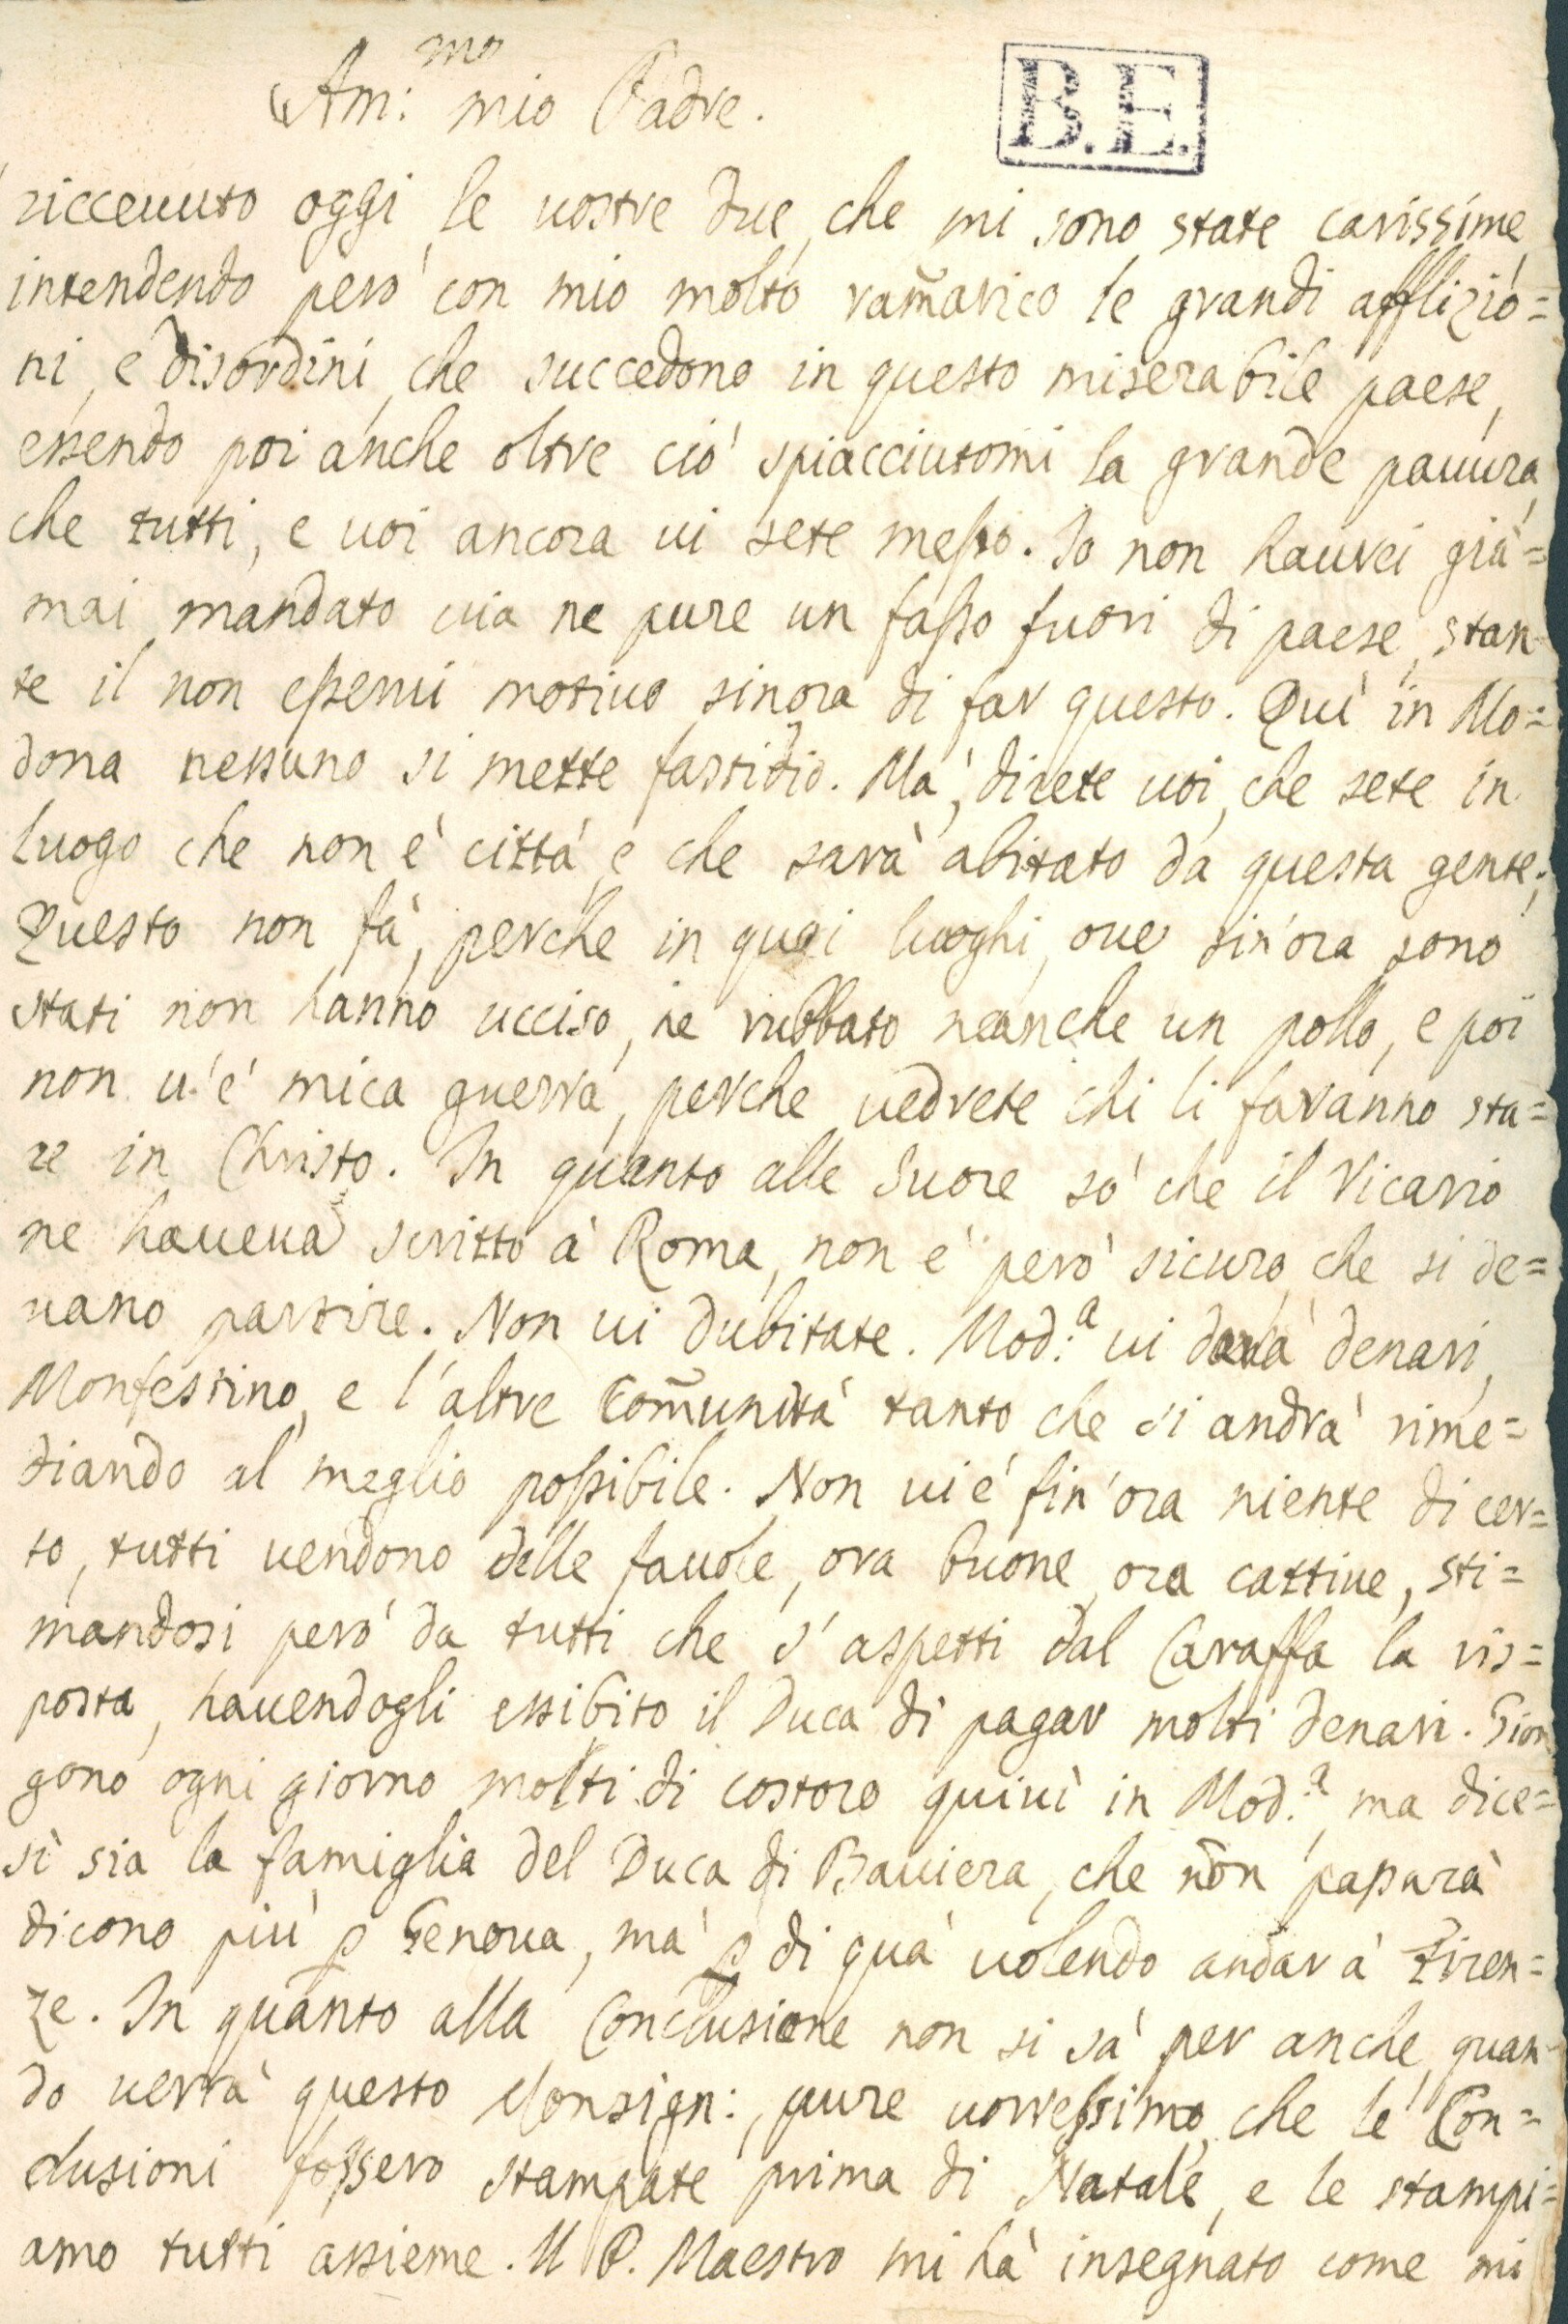 Am:mo mio Padre.
B.E.
riccevuto oggi le vostre due, che mi sono state carissime,
intendendo però con mio molto ram̃arico le grandi afflizio=
ni, e disordini, che succedono in questo miserabile paese,
essendo poi anche oltre ciò spiacciutomi la grande pauura,
che tutti, e uoi ancora ui sete messo. Io non haurei già=
mai mandato uia ne pure un sasso fuori di paese, stan
te il non esserui motiuo sinora di far questo. Quì in Mo=
dona nessuno si mette fastidio. Mà, direte uoi, che sete in
luogo che non è città, e che sarà abitato da questa gente;
Questo non fà, perche in quei luoghi, oue sin'ora sono
stati non hanno ucciso, ne rubbato neanche un pollo, e poi
non u'è mica guerra, perche uedrete chi li faranno sta=
re in Christo. In quanto alle Suore sò che il Vicario
ne haueua scritto à Roma, non è però sicuro, che si de=
uano partire. Non ui dubitate. Mod:a ui darà denari,
Montestino, e l'altre Com̃unità tanto che si andrà rime=
diando al meglio possibile. Non ui è sin'ora niente di cer=
to, tutti uendono delle fauole, ora buone, ora cattiue, sti=
mandosi però da tutti che s'aspetti dal Caraffa la ris=
posta, hauendogli essibito il Duca di pagar molti denari. Gion
gono ogni giorno molti di costoro quiuì in Mod:a, ma dice=
sì sia la famiglia del Duca di Bauiera, che nõn passarà
dicono più p Genoua, mà p di quà uolendo andar à Firen=
ze. In quanto alla Conclusione non si sà per anche, quan
do uerrà questo Monsign:, pure uorressimo, che le Con=
clusioni fossero stampate prima di Natale, e le stampi=
amo tutti assieme. Il P. Maestro mi hà insegnato come mi